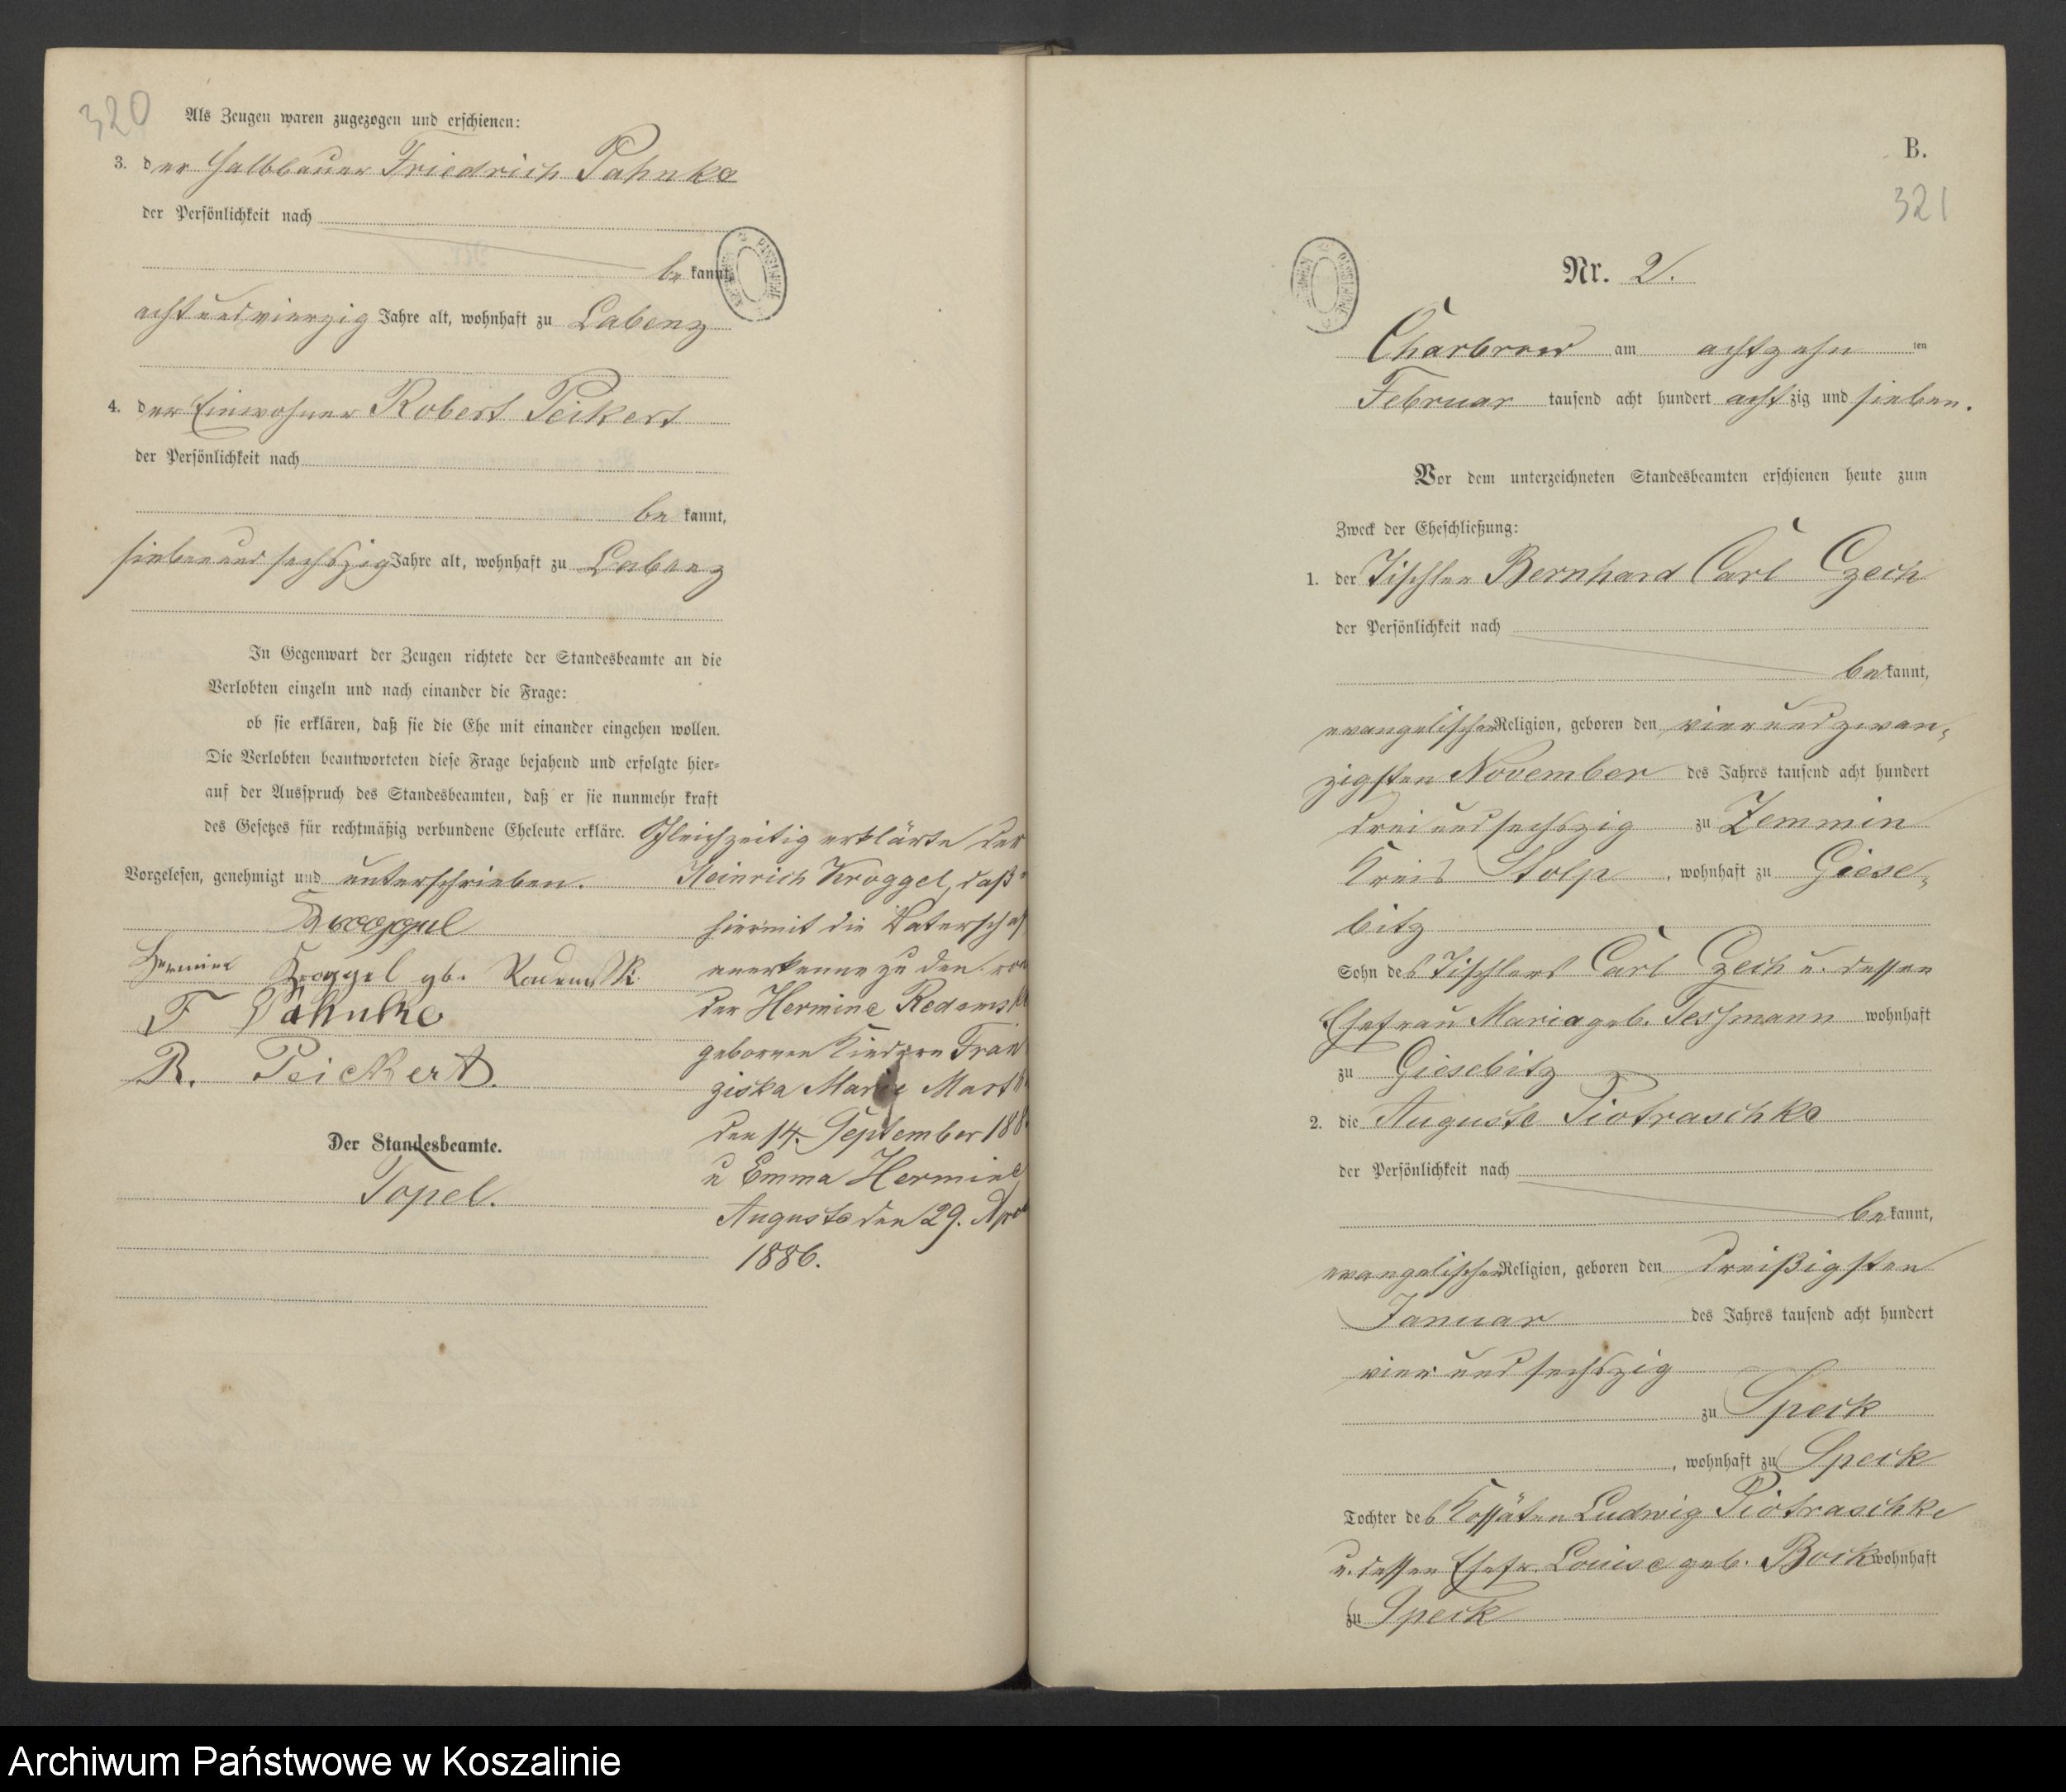 320
Als Zeugen waren zugezogen und erschienen:
3. der Halbbauer Friedrich Pahnke
der Persönlichkeit nach
be kannt,
achtundvierzig Jahre alt, wohnhaft zu Labenz
4. der Einwohner Robert Peikert
der Persönlichkeit nach
be kannt,
siebenundsechszig Jahre alt, wohnhaft zu Labenz
In Gegenwart der Zeugen richtete der Standesbeamte an die
Verlobten einzeln und nach einander die Frage:
ob sie erklären, daß sie die Ehe mit einander eingehen wollen.
Die Verlobten beantworteten diese Frage bejahend und erfolgte hier-
auf der Ausspruch des Standesbeamten, daß er sie nunmehr kraft
des Gesetzes für rechtmäßig verbundene Eheleute erkläre.
Vorgelesen, genehmigt und unterschrieben.
Kroggel
Hermine Kroggel gb.
F Pahnke
R. Peickert.
Der Standesbeamte.
Topel.
Gleichzeitig erklärte der
Heinrich Kroggel, daß
hiermit die Vaterschaf
anerkenne zu den von
der Hermine Redamsk
geborenen Kindern Fran
ziska Marie Marth
den 14. September 188
u Emma Hermine
Auguste den 29. Apr
1886.
B.
321
Nr. 2.
Charbrow am achtzehn ten
Februar tausend acht hundert achtzig und sieben.
Vor dem unterzeichneten Standesbeamten erschienen heute zum
Zweck der Eheschließung:
1. der Tischler Bernhard Carl Czech
der Persönlichkeit nach
be kannt,
evangelischer Religion, geboren den vierundzwan-
zigsten November des Jahres tausend acht hundert
dreiundsechszig zu Zemmin
Kreis Stolp, wohnhaft zu Giese-
bitz
Sohn des Tischlers Carl Czech u. dessen
Ehefrau Maria geb. Teshmann wohnhaft
zu Giesebitz
2. die Auguste Piotraschke
der Persönlichkeit nach
be kannt,
evangelischer Religion, geboren den dreißigsten
Januar des Jahres tausend acht hundert
vier und sechszig
zu Speck
, wohnhaft zu Speck
Tochter des Kossäten Ludwig Piotraschke
u. dessen Ehefr. Louise geb. Bock wohnhaft
zu Speck
Archiwum Państwowe w Koszalinie